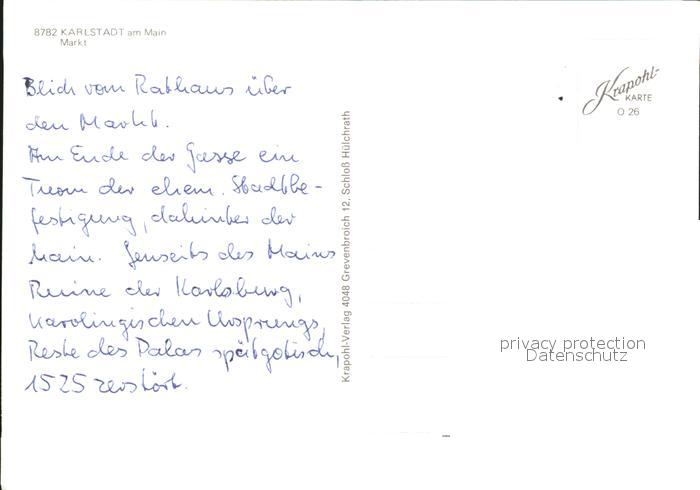 8782 KARLSTADT am Main
Markt
Blick vom Rathaus über
den Markt.
Am Ende der Gasse ein
Turm der ehem. Stadtbe-
festigung, dahinter der
Main. Jenseits des Mains
Ruine der Karlsburg,
karolingischen Ursprungs,
Reste des Palas spätgotisch,
1525 zerstört.
Krapohl-Verlag 4048 Grevenbroich 12, Schloß Hülchrath
Krapohl-
KARTE
O 26
privacy protection
Datenschutz